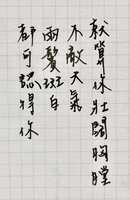 就算你壯闊胸膛
不敵天氣
兩鬢斑白
都可認得你